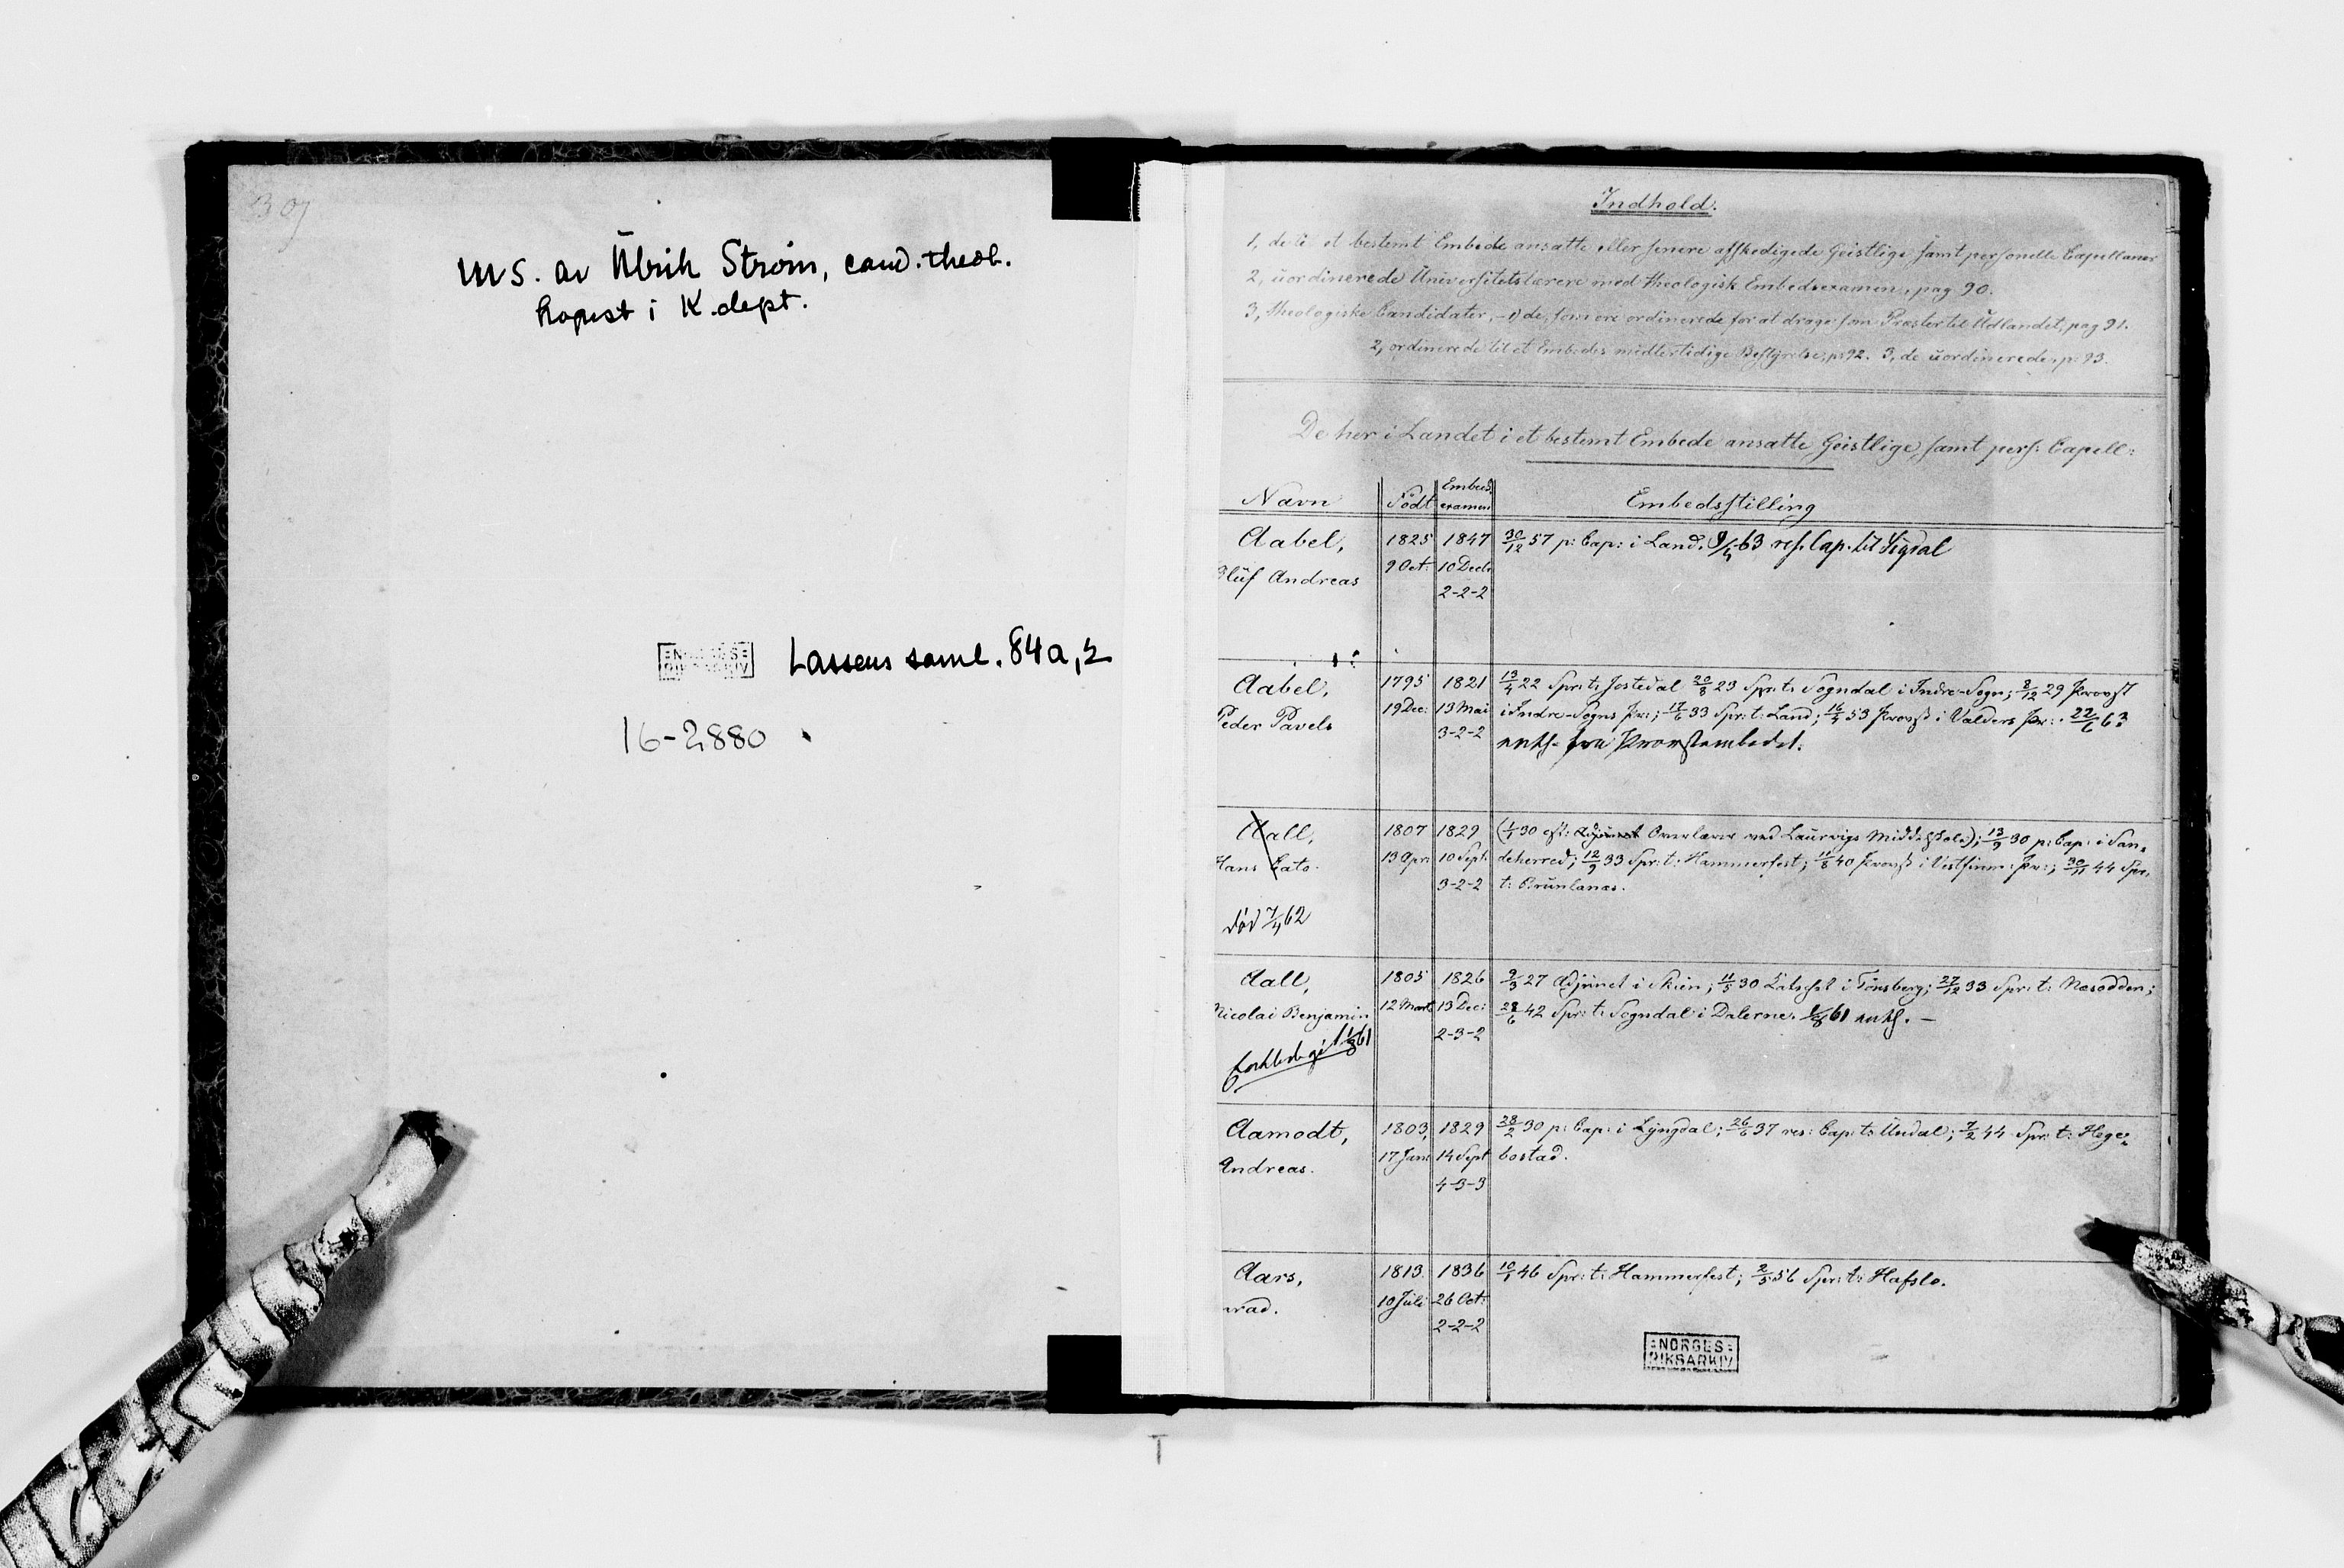 307
MS. av Ulrik Strøm, cand. theol.
kopist i K.dept.
NORGES
RIKSARKIV
Lassens saml. 84a,2
16-2880
Indhold.
1, de i et bestemt Embede ansatte eller senere afskedigede Geistlige samt personelle Capellaner
2, uordinerede Universitetslærere med theologisk Embedsexamen, pag 90.
3, theologiske Candidater, -1) de, som ere ordinerede for at drage som Præster til Udlandet, pag 91.
2, ordinerede til et Embedes midlertidige Bestyrelse, p: 92. 3, de uordinerede, p: 93.
De her i Landet i et bestemt Embede ansatte Geistlige, samt pers: Capell:
Navn Født Embeds examen Embedsstilling
Aabel, 1825 1847 30/12 57 p: Cap: i Land. 9/4 63 res. Cap. til Sigdal
Oluf Andreas 9 Oct: 10 Decb:
2-2-2
Aabel, 1795 1821 13/4 22 Spr: t: Jostedal 20/8 23 Spr: t: Sogndal i Indre-Sogn; 8/12 29 Provst
Peder Pavels 19 Dec: 13 Mai i Indre-Sogns Pr:; 17/6 33 Spr: t: Land; 16/4 53 Provst i Valders Pr:. 22/6 63
3-2-2 entl. fra Provstembedet.
Aall, 1807 1829 (1/1 30 cst: Adjunct Overlærer ved Laurvigs Middelskole); 13/9 30 p: Cap: i San-
Hans Cato. 13 Apr: 10 Sept: deherred; 12/9 33 Spr: t: Hammerfest; 11/8 40 Provst i Vestfinm: Pr:; 30/11 44 Spr:
3-2-2 t: Brunlanæs.
død 7/4 62
Aall, 1805 1826 2/3 27 Adjunct i Skien; 11/5 30 Catechet i Tønsberg; 27/12 33 Spr: t: Næsodden;
Nicolai Benjamin 12 Mart: 13 Dec: 28/6 42 Spr: t: Sogndal i Dalerne. 1/8 61 entl. -
2-3-2
1/8 61
Aamodt, 1803, 1829 28/2 30 p: Cap: i Lyngdal; 26/6 37 res: Cap: t: Undal; 7/2 44 Spr: t: Hege-
Andreas. 17 Janr 14 Sept bostad.
4-3-3
Aars, 1813 1836 10/1 46 Spr: t: Hammerfest; 2/5 56 Spr: t: Hafslo.
rad. 10 Juli 26 Oct:
2-2-2
NORGES
RIKSARKIV
T